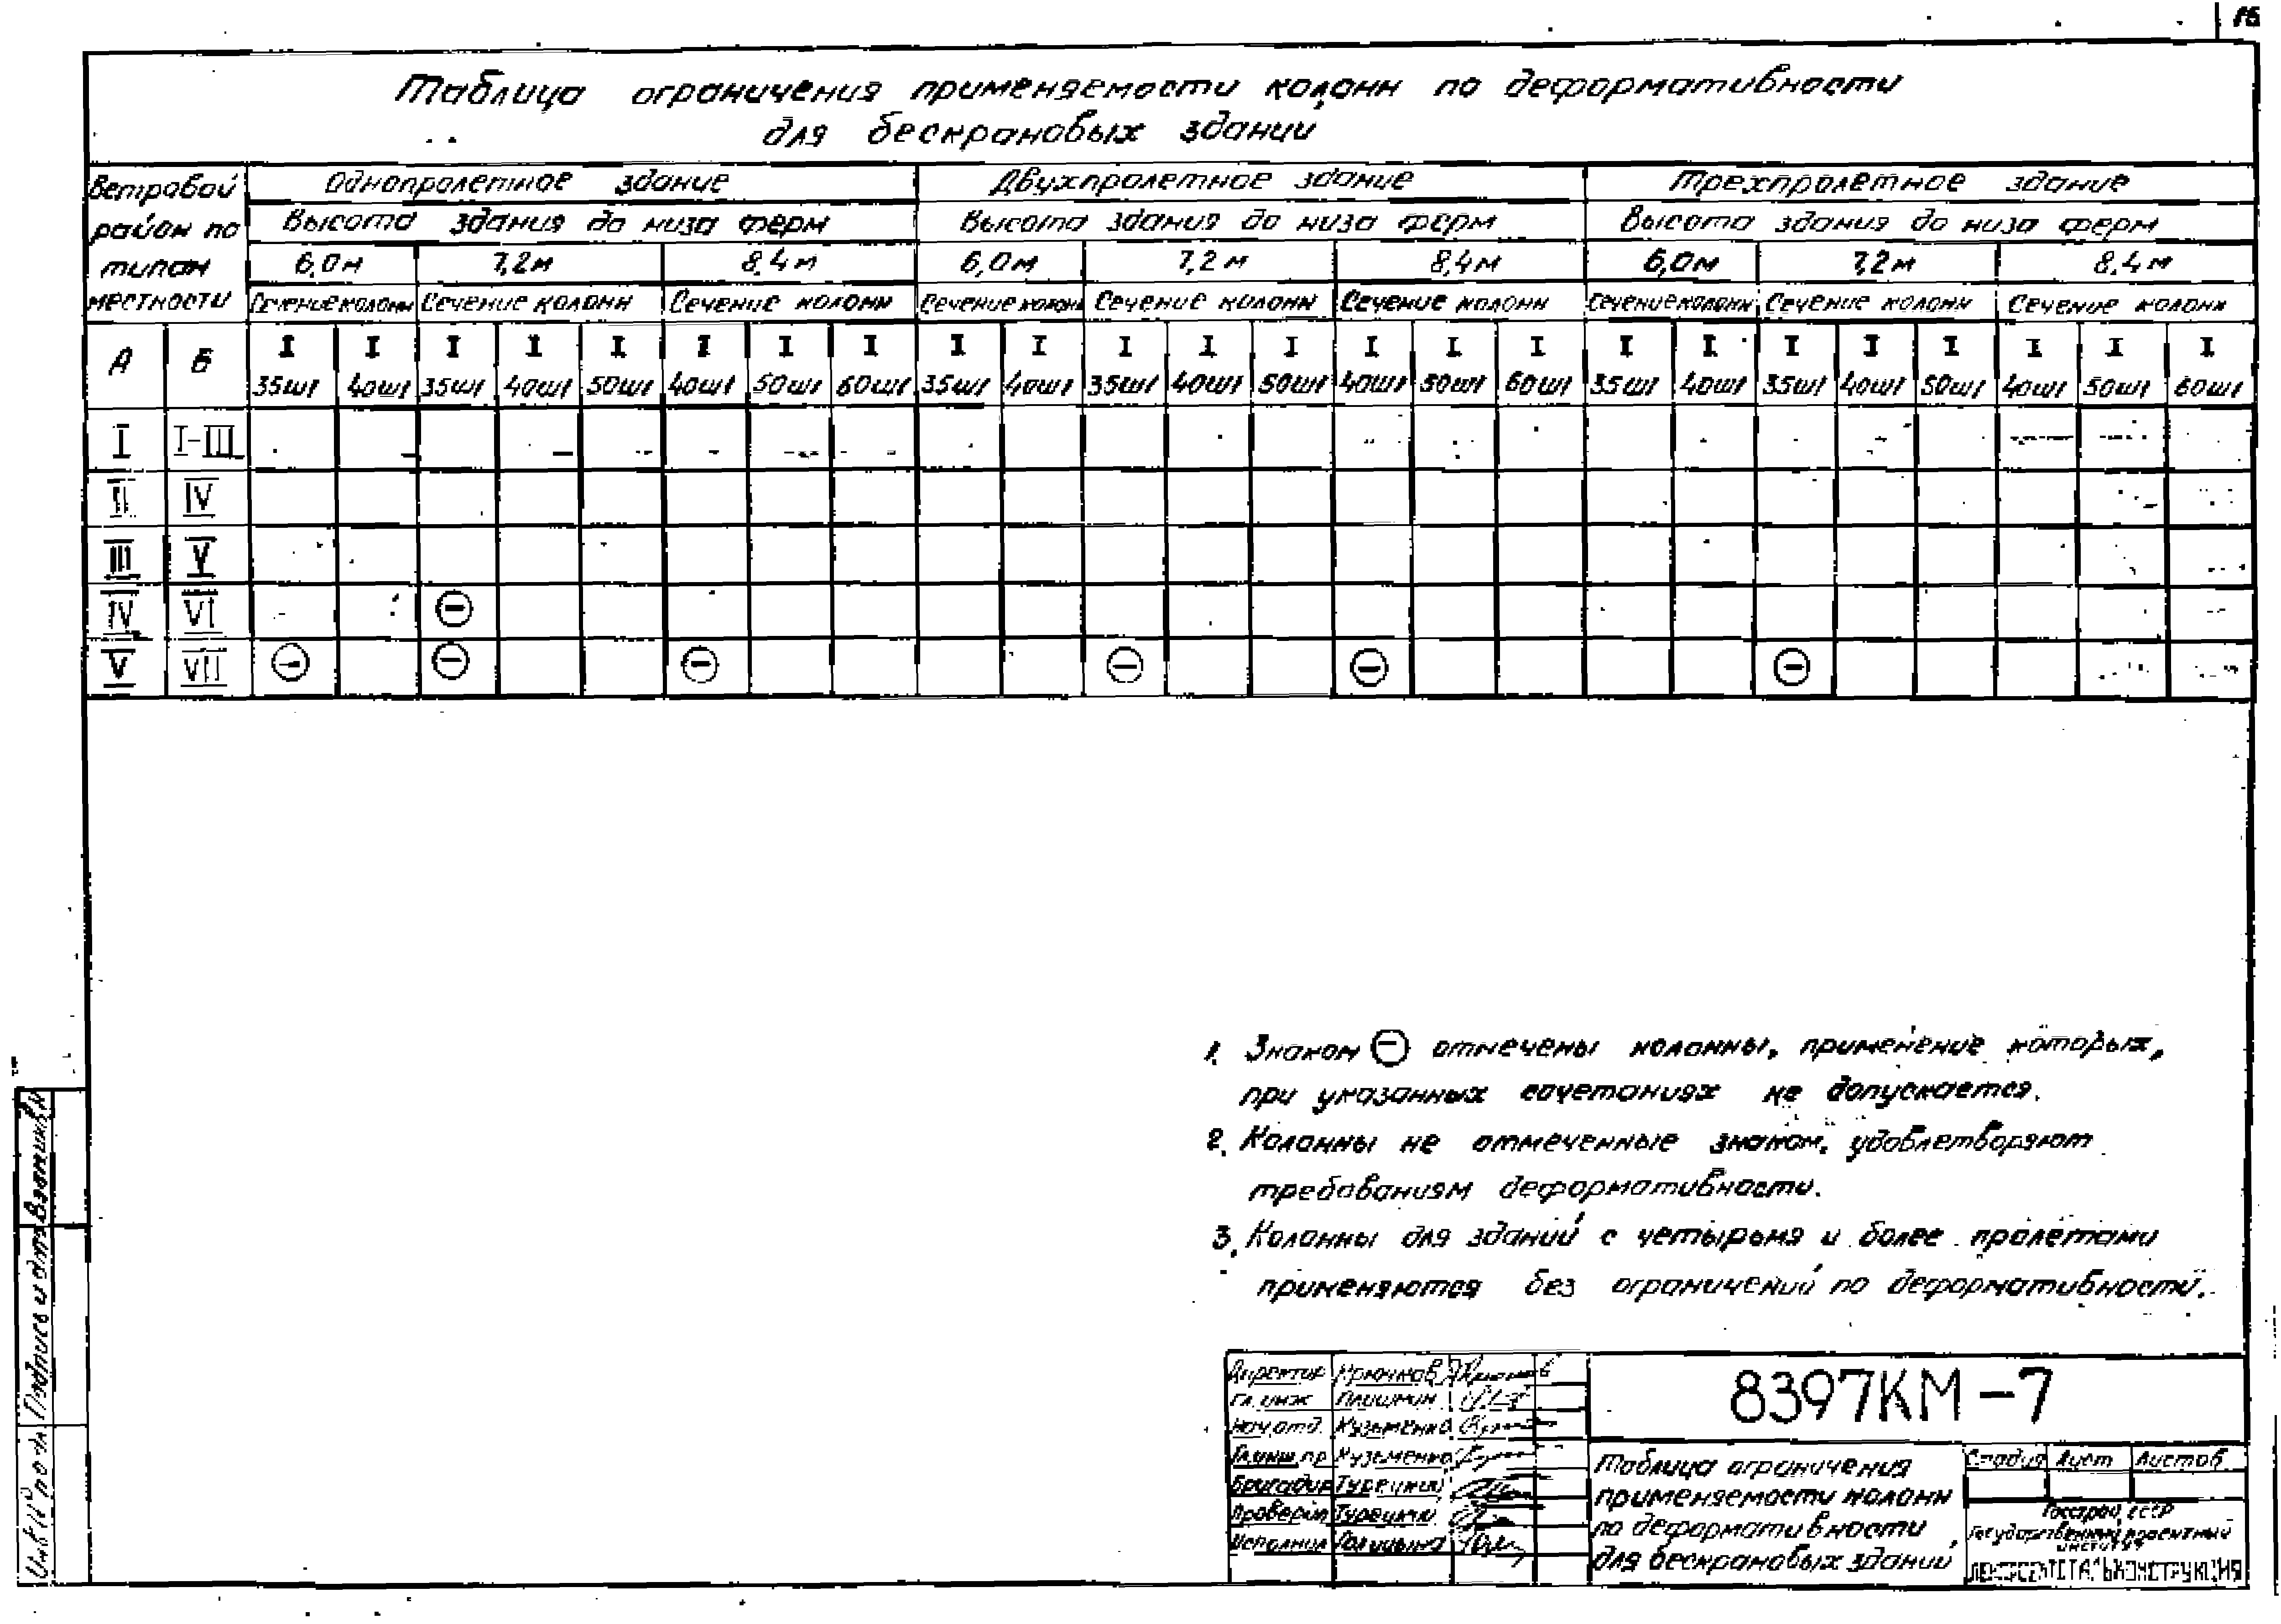 16
Таблица ограничения применяемости колонн по деформативности
для бескрановых зданий
Ветровой район по типам местности
Однопролетное здание
Двухпролетное здание
Трехпролетное здание
Высота здания до низа ферм
Высота здания до низа ферм
Высота здания до низа ферм
6,0м 7,2м 8,4м 6,0м 7,2м 8,4м 6,0м 7,2м 8,4м
Сечение колонн Сечение колонн Сечение колонн Сечение колонн Сечение колонн Сечение колонн Сечение колонн Сечение колонн Сечение колонн
А Б I I I I I I I I I I I I I I I I I I I I I I I I
35ш1 40ш1 35ш1 40ш1 50ш1 40ш1 50ш1 60ш1 35ш1 40ш1 35ш1 40ш1 50ш1 40ш1 50ш1 60ш1 35ш1 40ш1 35ш1 40ш1 50ш1 40ш1 50ш1 60ш1
I I-III
II IV
III V
IV VI ⊖
V VII ⊖ ⊖ ⊖ ⊖ ⊖ ⊖
1. Знаком ⊖ отмечены колонны, применение которых,
при указанных сочетаниях не допускается.
2. Колонны не отмеченные знаком, удовлетворяют
требованиям деформативности.
3. Колонны для зданий с четырьмя и более пролетами
применяются без ограничений по деформативности.
Директор Крючков
Гл. инж Плишкин
Нач.отд. Кузьменко
Гл.инж.пр Кузьменко
Бригадир Турецкий
Проверил Турецкий
Исполнил Голицына
8397КМ-7
Таблица ограничения
применяемости колонн
по деформативности
для бескрановых зданий
Стадия Лист Листов
Госстрой СССР
Государственный проектный
институт
ЛЕНПРОЕКТСТАЛЬКОНСТРУКЦИЯ
Инв. № подл Подпись и дата Взам.инв.№